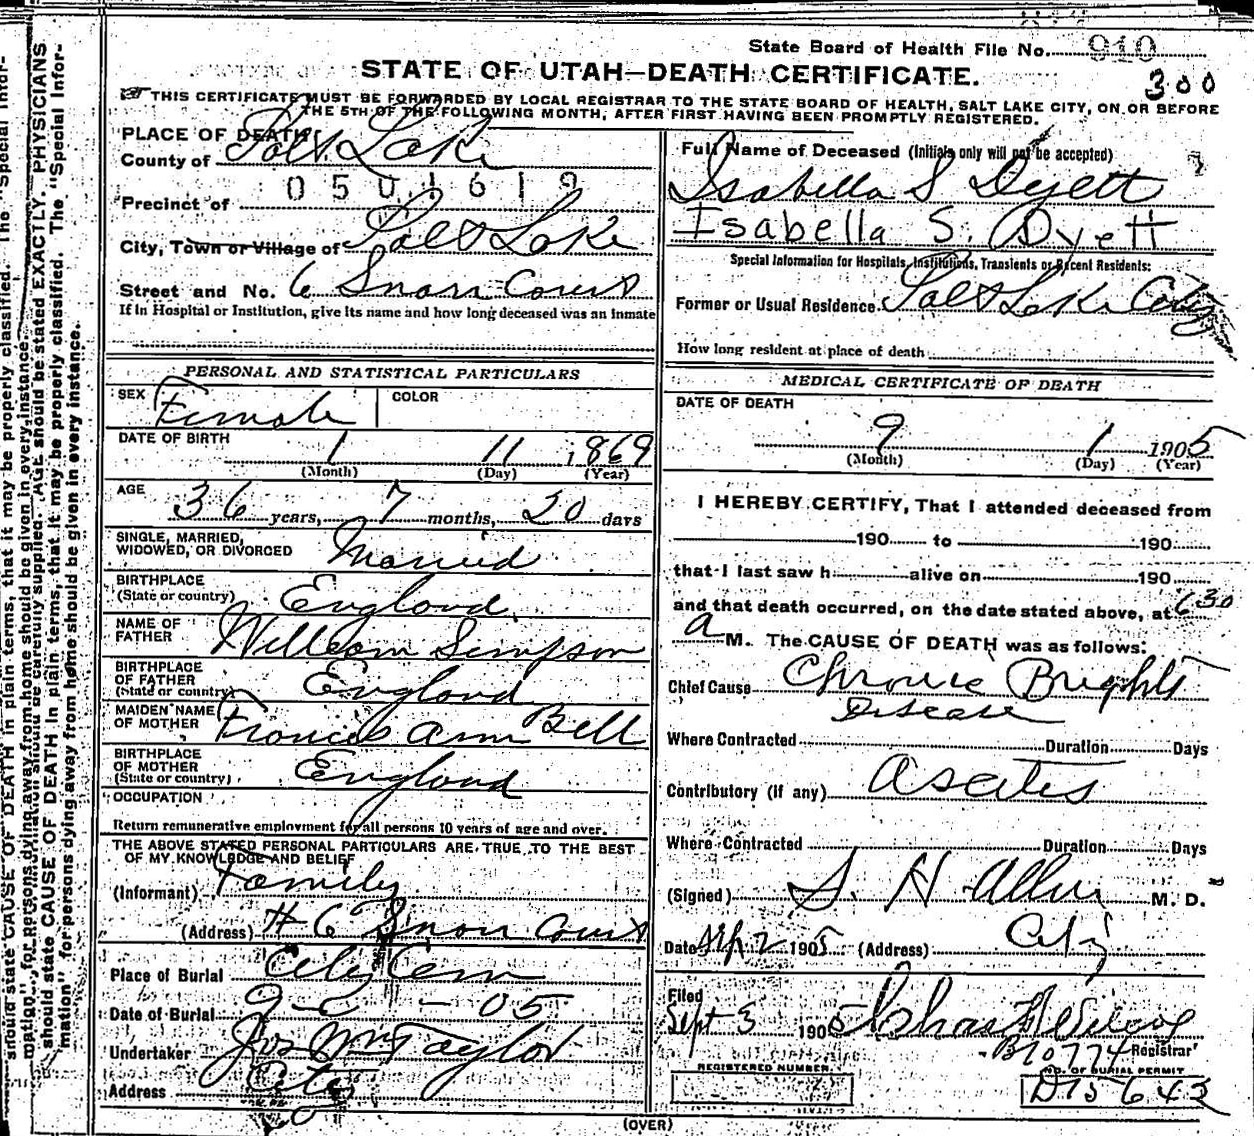 State Board of Health File No. 910
300
STATE OF UTAH—DEATH CERTIFICATE.
THIS CERTIFICATE MUST BE FORWARDED BY LOCAL REGISTRAR TO THE STATE BOARD OF HEALTH, SALT LAKE CITY, ON OR BEFORE
THE 5TH OF THE FOLLOWING MONTH, AFTER FIRST HAVING BEEN PROMPTLY REGISTERED.
PLACE OF DEATH
County of Salt Lake
0501619
Precinct of
City, Town or Village of Salt Lake
Street and No. 6 Snow Court
If in Hospital or Institution, give its name and how long deceased was an inmate
Full Name of Deceased (Initials only will not be accepted)
Isabella S Dyett
Isabella S. Dyett
Special Information for Hospitals, Institutions, Transients or Recent Residents:
Former or Usual Residence Salt Lake City
How long resident at place of death
PERSONAL AND STATISTICAL PARTICULARS
SEX Female
COLOR
DATE OF BIRTH
1 11 1869
(Month) (Day) (Year)
AGE
36 years, 7 months, 20 days
SINGLE, MARRIED,
WIDOWED, OR DIVORCED Married
BIRTHPLACE
(State or country) England
NAME OF
FATHER William Simpson
BIRTHPLACE
OF FATHER
(State or country) England
MAIDEN NAME
OF MOTHER Frances Ann Bell
BIRTHPLACE
OF MOTHER
(State or country) England
OCCUPATION
Return remunerative employment for all persons 10 years of age and over.
THE ABOVE STATED PERSONAL PARTICULARS ARE TRUE TO THE BEST
OF MY KNOWLEDGE AND BELIEF
(Informant) Family
(Address) # 6 Snow Court
Place of Burial City Cem
Date of Burial 9- -05
Undertaker Jos Wm Taylor
Address City
MEDICAL CERTIFICATE OF DEATH
DATE OF DEATH
9 1 1905
(Month) (Day) (Year)
I HEREBY CERTIFY, That I attended deceased from
190 to 190
that I last saw h alive on 190
and that death occurred, on the date stated above, at 6 30
a M. The CAUSE OF DEATH was as follows:
Chief Cause Chronic Brights
Disease
Where Contracted Duration Days
Contributory (if any) Ascites
Where Contracted Duration Days
(Signed) S. H Allen M. D.
Date 2 1905 (Address) City
Filed
Sept 3 1905
Registrar
B10774
REGISTERED NUMBER.
NO. OF BURIAL PERMIT
D15643
(OVER)
should state CAUSE OF DEATH in plain terms, that it may be properly classified. The "Special Infor-
mation" for persons dying away from home should be given in every instance.
AGE should be stated EXACTLY. PHYSICIANS
should state CAUSE OF DEATH in plain terms, that it may be properly classified. The "Special Infor-
mation" for persons dying away from home should be given in every instance.